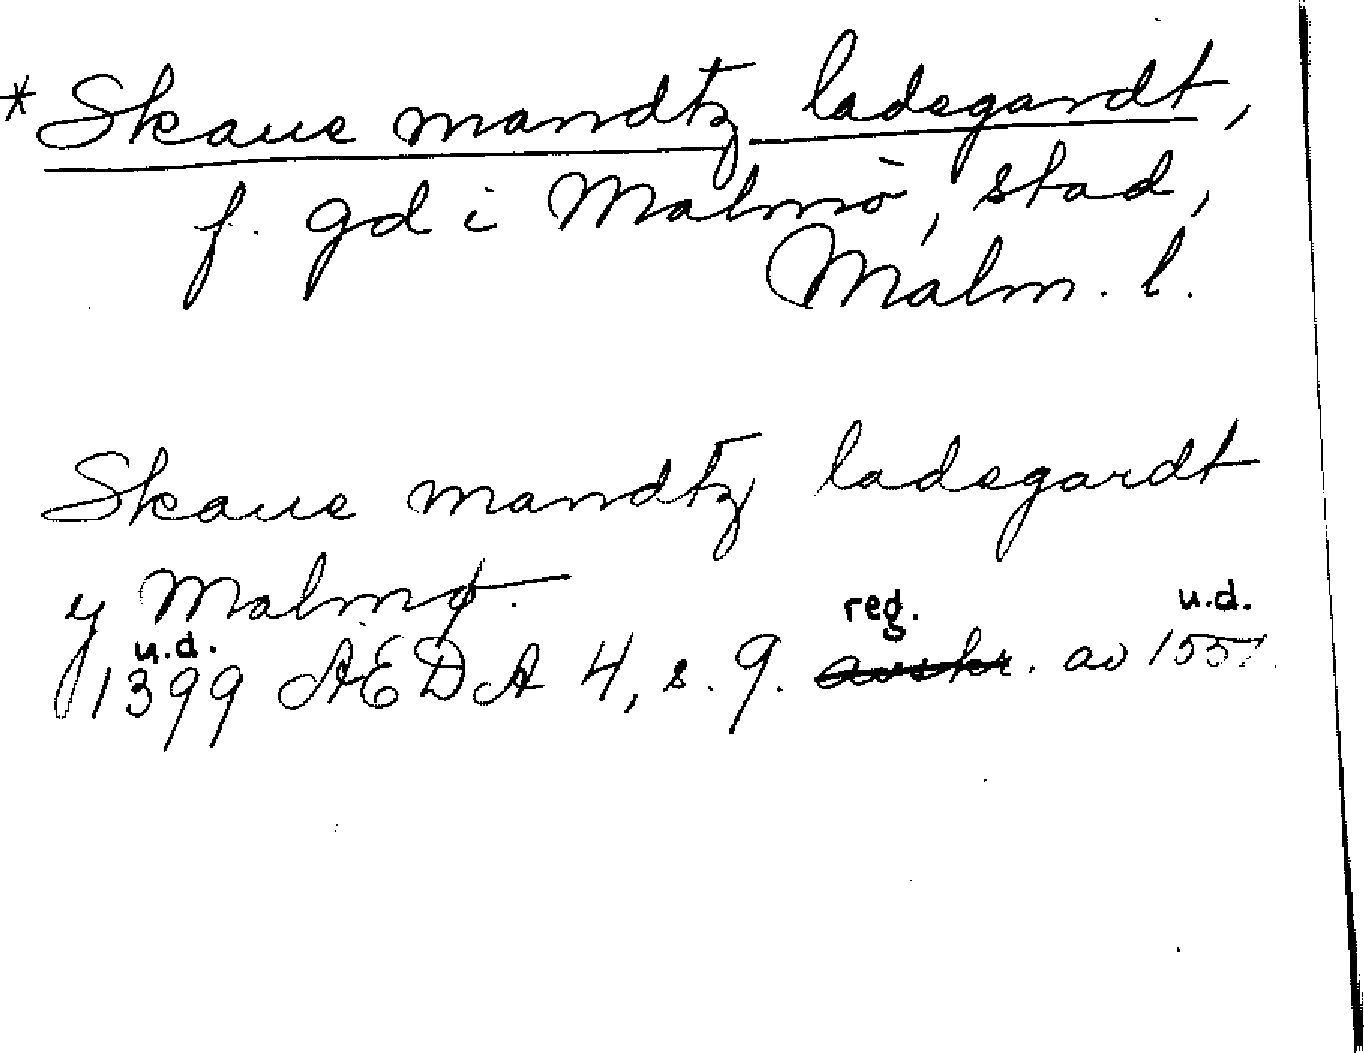 * Skaue mandtz ladegardt,
f. gd i Malmö, stad,
Malm. l.
Skaue mandtz ladegardt
y Malmø.
u.d. reg. u.d.
1399 ÆDA 4, s. 9. avskr. av 1551.